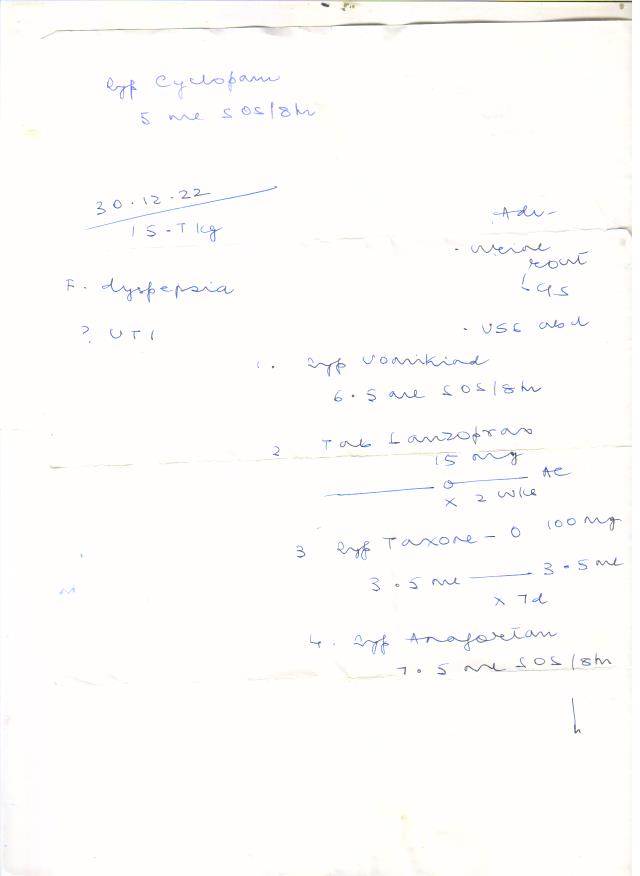 Syp Cyclopam
5 ml SOS/8hr
30.12.22
15.7 kg
F. dyspepsia
? UTI
Adv-
. Urine
rout
CS
. USG abd
1. Syp Vomikind
6.5 ml SOS/8hr
2 Tab Lanzopras
15 mg
0 AC
x 2 wks
3 Syp Taxone-O 100 mg
3.5 ml — 3.5 ml
x 7d
4. Syp Anafortan
7.5 ml SOS/8hr